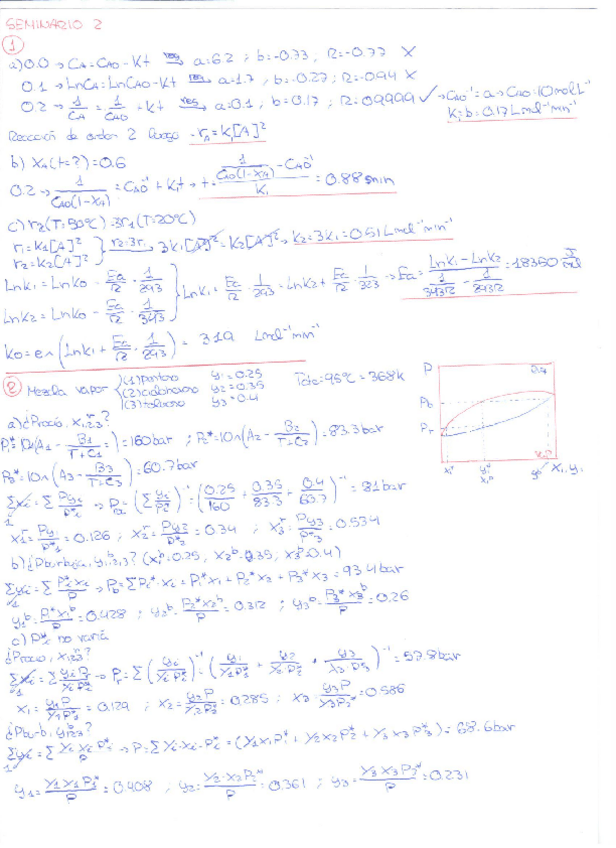 SEMINARIO 2
①
a) 0.0 → CA = CAO - Kt → reg a = 6.2 ; b = -0.73 ; R = -0.77 X
0.1 → LnCA = LnCAO - Kt reg → a = 1.7 ; b = -0.27 ; R = -0.94 X
0.2 → 1/CA = 1/CAO + Kt reg → a = 0.1 ; b = 0.17 ; R = 0.9999 ✓ → CAO⁻¹ = a → CAO = 10 mol L⁻¹
K = b = 0.17 L mol⁻¹ min⁻¹
Reacción de orden 2 luego -rA = K[A]²
b) XA (t=?) = 0.6
0.2 → 1/(CAO(1-XA)) = CAO⁻¹ + K₁t → t = (1/(CAO(1-XA)) - CAO⁻¹)/K₁ = 0.88 min
c) r₂(T=50ºC) = 3r₁(T=20ºC)
r₁ = K₁[A]²
r₂ = K₂[A]² } r₂=3r₁ → 3K₁[A]² = K₂[A]² → K₂ = 3K₁ = 0.51 L mol⁻¹ min⁻¹
LnK₁ = LnK₀ - Ea/R · 1/293
LnK₂ = LnK₀ - Ea/R · 1/343 } LnK₁ + Ea/R · 1/293 = LnK₂ + Ea/R · 1/323 → Ea = (LnK₁ - LnK₂)/(1/343R - 1/293R) = 18350 J/mol
K₀ = en (LnK₁ + Ea/R · 1/293) = 319 L mol⁻¹ min⁻¹
② Mezcla vapor (1) pentano y₁ = 0.25 Tº cte: 95ºC = 368K
(2) ciclohexano y₂ = 0.35
(3) tolueno y₃ = 0.4
a) ¿Procío, x₁,₂,₃ʳ?
P₁* = 10^(A₁ - B₁/(T+C₁)) = 160 bar ; P₂* = 10^(A₂ - B₂/(T+C₂)) = 83.3 bar
P₃* = 10^(A₃ - B₃/(T+C₃)) = 60.7 bar
Σxi = Σ Pyi/Pi* → P = (Σ yi/Pi*)⁻¹ = (0.25/160 + 0.35/83.3 + 0.4/63.7)⁻¹ = 81 bar
1
x₁ʳ = Py₁/P₁* = 0.126 ; x₂ʳ = Py₂/P₂* = 0.34 ; x₃ʳ = Py₃/P₃* = 0.534
b) ¿Pburbuja, y₁,₂,₃? (x₁ᵇ = 0.25, x₂ᵇ = 0.35, x₃ᵇ = 0.4)
Σyi = Σ Pi*xi/P → Pb = ΣPi*·xi = P₁*x₁ + P₂*x₂ + P₃*x₃ = 93.4 bar
y₁ᵇ = P₁*x₁ᵇ/P = 0.428 ; y₂ᵇ = P₂*x₂ᵇ/P = 0.312 ; y₃ᵇ = P₃*x₃ᵇ/P = 0.26
c) Pi* no varía
¿Procío, x₁,₂,₃?
Σxi = Σ yiP/γiPi* → Pr = Σ(yi/γiPi*)⁻¹ = (y₁/γ₁P₁* + y₂/γ₂P₂* + y₃/γ₃P₃*)⁻¹ = 57.8 bar
1
x₁ = y₁P/γ₁P₁* = 0.129 ; x₂ = y₂P/γ₂P₂* = 0.285 ; x₃ = y₃P/γ₃P₃* = 0.586
¿Pburb, y₁,₂,₃?
Σyi = Σ γi xi Pi*/P → P = Σγi·xi·Pi* = (γ₁x₁P₁* + γ₂x₂P₂* + γ₃x₃P₃*) = 68.6 bar
1
y₁ = γ₁x₁P₁*/P = 0.408 ; y₂ = γ₂·x₂P₂*/P = 0.361 ; y₃ = γ₃x₃P₃*/P = 0.231
P
Pb
Pr
x₁, y₁